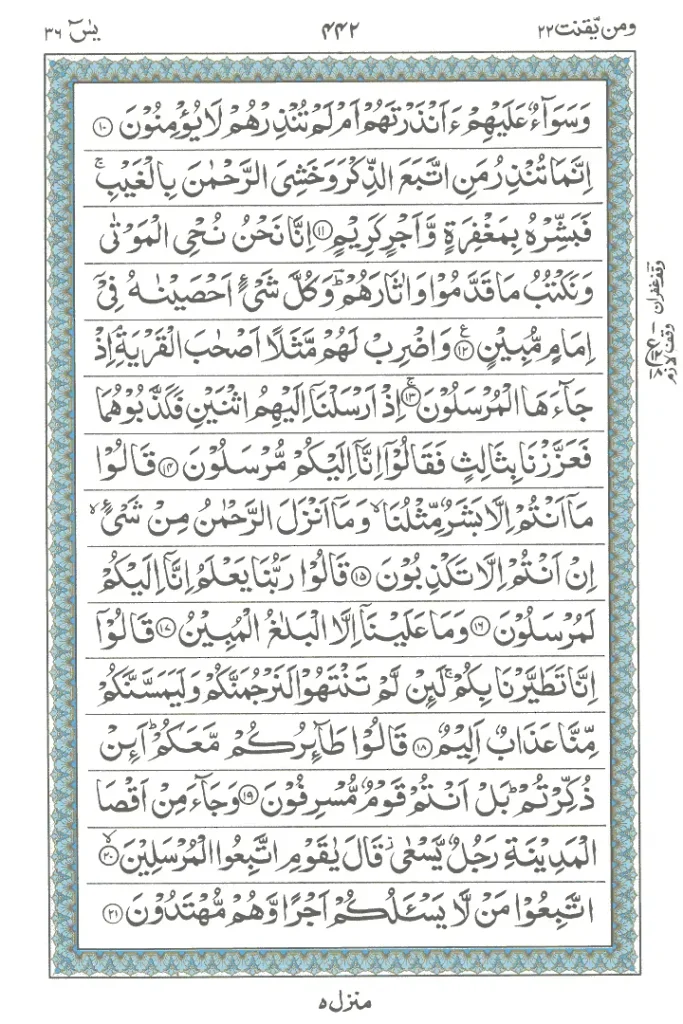 ومن يّقنت ٢٢ ۴۴۲ يٰسٓ ٣٦
وَسَوَآءٌ عَلَيْهِمْ ءَاَنْذَرْتَهُمْ اَمْ لَمْ تُنْذِرْهُمْ لَا يُؤْمِنُوْنَ ۝١٠
اِنَّمَا تُنْذِرُ مَنِ اتَّبَعَ الذِّكْرَ وَخَشِيَ الرَّحْمٰنَ بِالْغَيْبِ ۚ
فَبَشِّرْهُ بِمَغْفِرَةٍ وَّاَجْرٍ كَرِيْمٍ ۝١١ اِنَّا نَحْنُ نُحْيِ الْمَوْتٰى
وَنَكْتُبُ مَا قَدَّمُوْا وَاٰثَارَهُمْ ۭ وَكُلَّ شَيْءٍ اَحْصَيْنٰهُ فِيْٓ
اِمَامٍ مُّبِيْنٍ ۝١٢ع وَاضْرِبْ لَهُمْ مَّثَلًا اَصْحٰبَ الْقَرْيَةِ ۘ اِذْ
جَآءَهَا الْمُرْسَلُوْنَ ۝١٣ۚ اِذْ اَرْسَلْنَآ اِلَيْهِمُ اثْنَيْنِ فَكَذَّبُوْهُمَا
فَعَزَّزْنَا بِثَالِثٍ فَقَالُوْٓا اِنَّآ اِلَيْكُمْ مُّرْسَلُوْنَ ۝١٤ قَالُوْا
مَآ اَنْتُمْ اِلَّا بَشَرٌ مِّثْلُنَا ۙ وَمَآ اَنْزَلَ الرَّحْمٰنُ مِنْ شَيْءٍ ۙ
اِنْ اَنْتُمْ اِلَّا تَكْذِبُوْنَ ۝١٥ قَالُوْا رَبُّنَا يَعْلَمُ اِنَّآ اِلَيْكُمْ
لَمُرْسَلُوْنَ ۝١٦ وَمَا عَلَيْنَآ اِلَّا الْبَلٰغُ الْمُبِيْنُ ۝١٧ قَالُوْٓا
اِنَّا تَطَيَّرْنَا بِكُمْ ۚ لَئِنْ لَّمْ تَنْتَهُوْا لَنَرْجُمَنَّكُمْ وَلَيَمَسَّنَّكُمْ
مِّنَّا عَذَابٌ اَلِيْمٌ ۝١٨ قَالُوْا طَآئِرُكُمْ مَّعَكُمْ ۭ اَئِنْ
ذُكِّرْتُمْ ۭ بَلْ اَنْتُمْ قَوْمٌ مُّسْرِفُوْنَ ۝١٩ وَجَآءَ مِنْ اَقْصَا
الْمَدِيْنَةِ رَجُلٌ يَّسْعٰى ۡ قَالَ يٰقَوْمِ اتَّبِعُوا الْمُرْسَلِيْنَ ۝٢٠ۙ
اتَّبِعُوْا مَنْ لَّا يَسْـَٔلُكُمْ اَجْرًا وَّهُمْ مُّهْتَدُوْنَ ۝٢١
وقف غفران
وقف لازم
منزل ٥